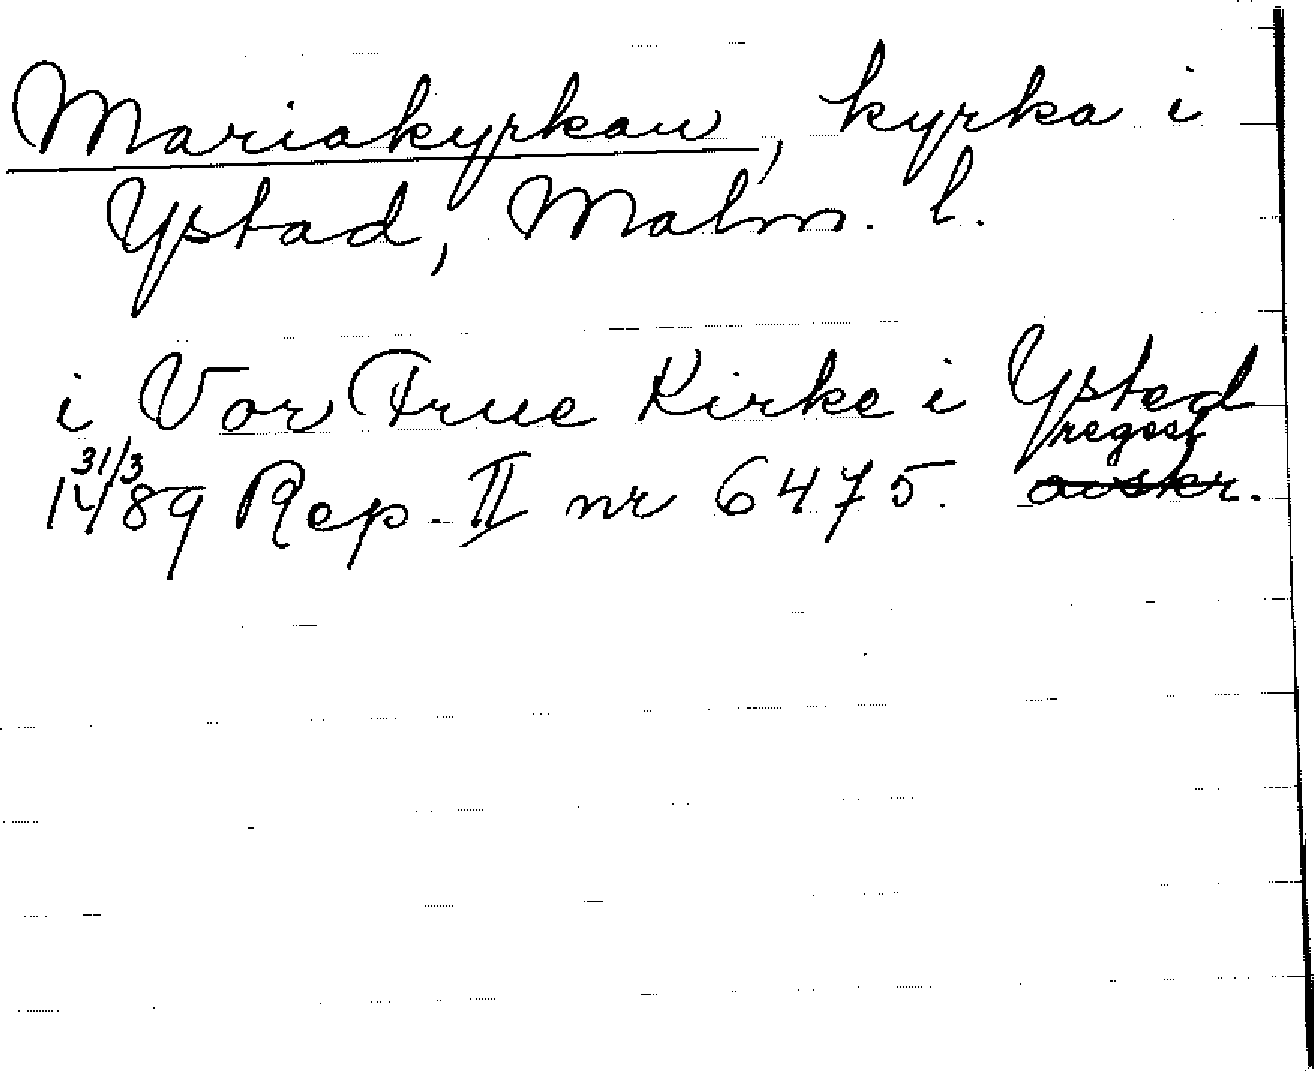 Mariakyrkan, kyrka i
Ystad, Malm. l.
i Vor Frue Kirke i Ysted
31/3 regest
14/89 Rep. II nr 6475. avskr.